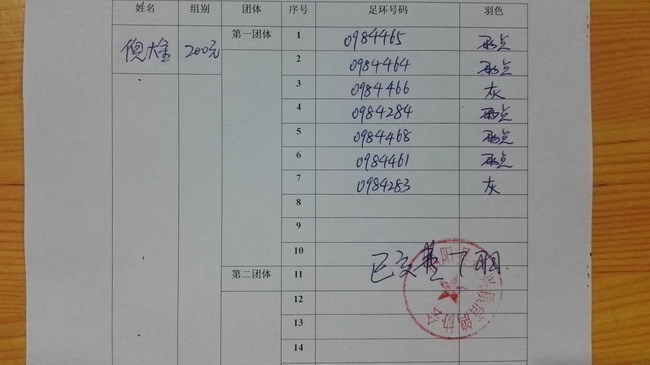 姓名 组别 团体 序号 足环号码 羽色
倪大金 200元 第一团体 1 0984465 雨点
2 0984464 雨点
3 0984466 灰
4 0984284 雨点
5 0984468 雨点
6 0984461 雨点
7 0984283 灰
8
9
10
已交 7羽
第二团体 11
12
13
14